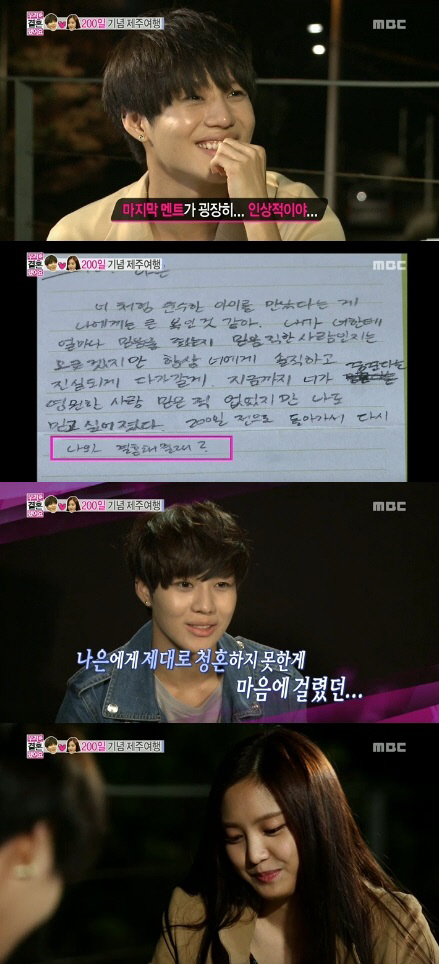 우리
결혼
했어요
200일 기념 제주여행
MBC
마지막 멘트가 굉장히... 인상적이야...
우리
결혼
했어요
200일 기념 제주여행
MBC
너처럼 순수한 아이를 만났다는 게
나에게는 큰 복인것 같아. 내가 너한테
얼마나 믿음을 줬는지 믿음직한 사람인지는
모르겠지만 항상 너에게 솔직하고
진실되게 다가갈게. 지금까지 니가
영원한 사랑 믿은 적 없었지만 나도
믿고 싶어졌다. 200일 전으로 돌아가서 다시
나와 결혼해줄래?
우리
결혼
했어요
200일 기념 제주여행
MBC
나은에게 제대로 청혼하지 못한게
마음에 걸렸던...
우리
결혼
했어요
200일 기념 제주여행
MBC